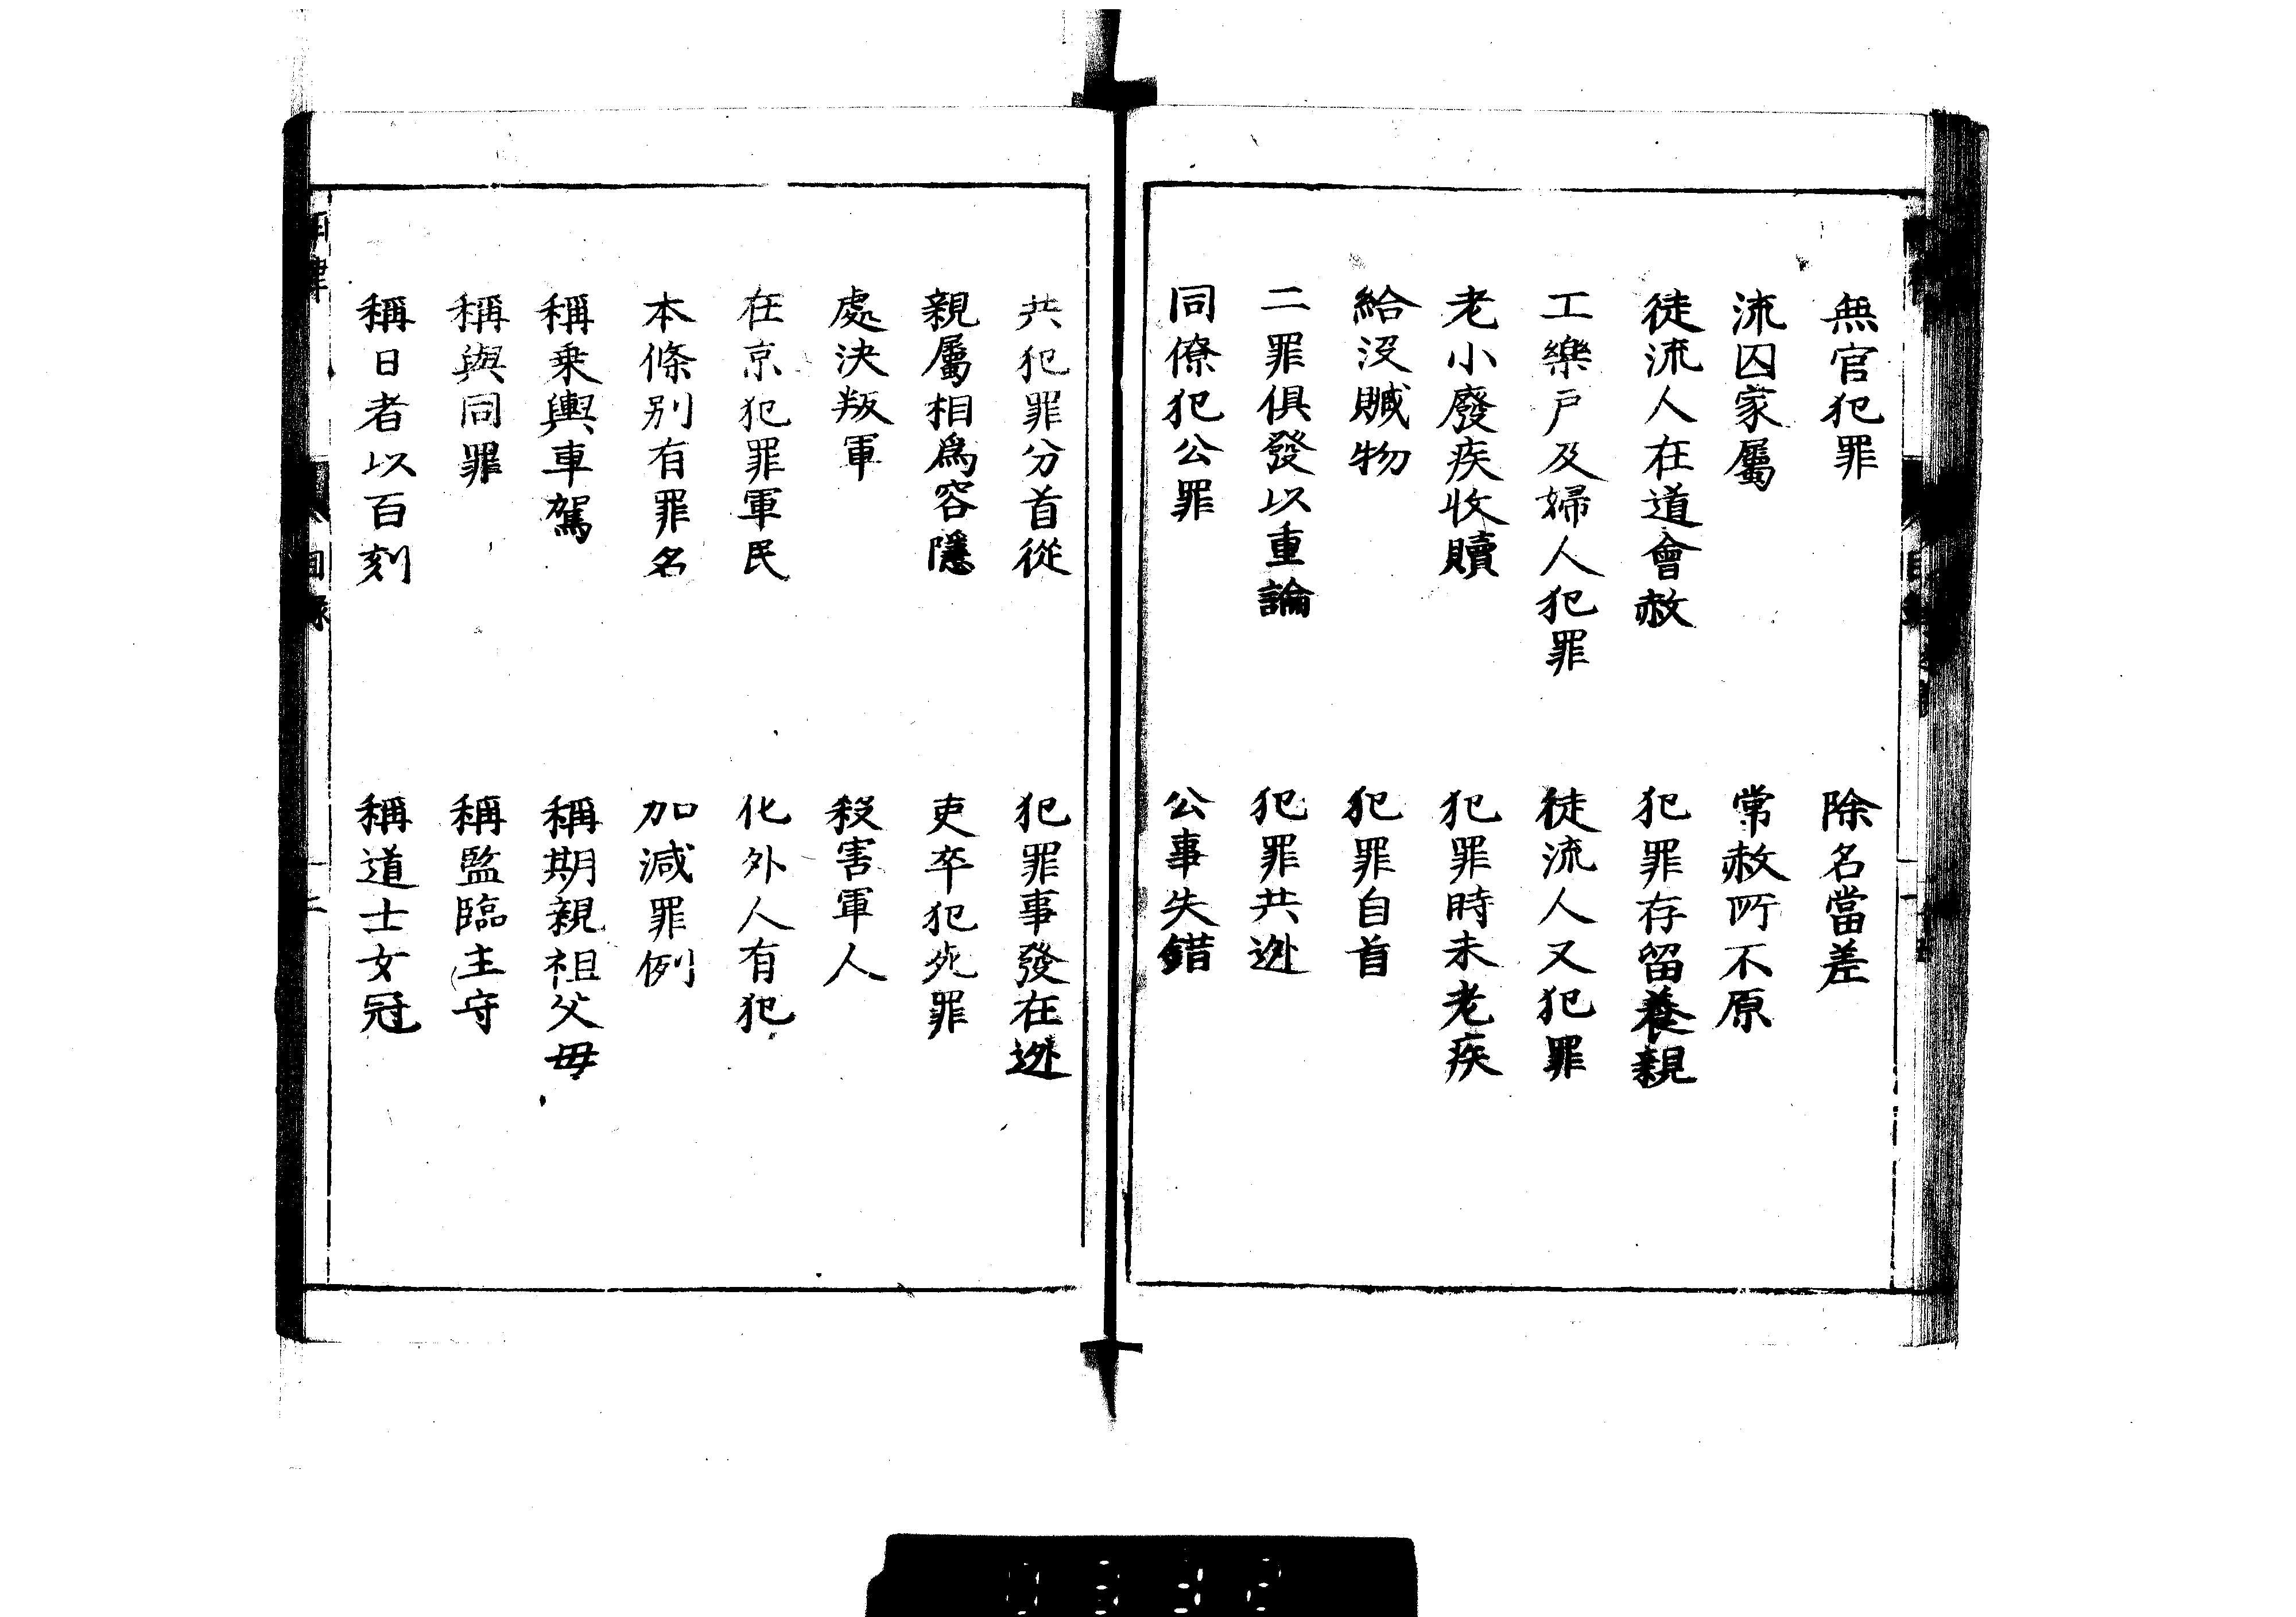 無官犯罪　除名當差
流囚家屬　常赦所不原
徒流人在道會赦　犯罪存留養親
工樂戶及婦人犯罪　徒流人又犯罪
老小廢疾收贖　犯罪時未老疾
給沒贓物　犯罪自首
二罪俱發以重論　犯罪共逃
同僚犯公罪　公事失錯
共犯罪分首從　犯罪事發在逃
親屬相爲容隱　吏卒犯死罪
處決叛軍　殺害軍人
在京犯罪軍民　化外人有犯
本條别有罪名　加減罪例
稱乗輿車駕　稱期親祖父母
稱與同罪　稱監臨主守
稱日者以百刻　稱道士女冠
目錄